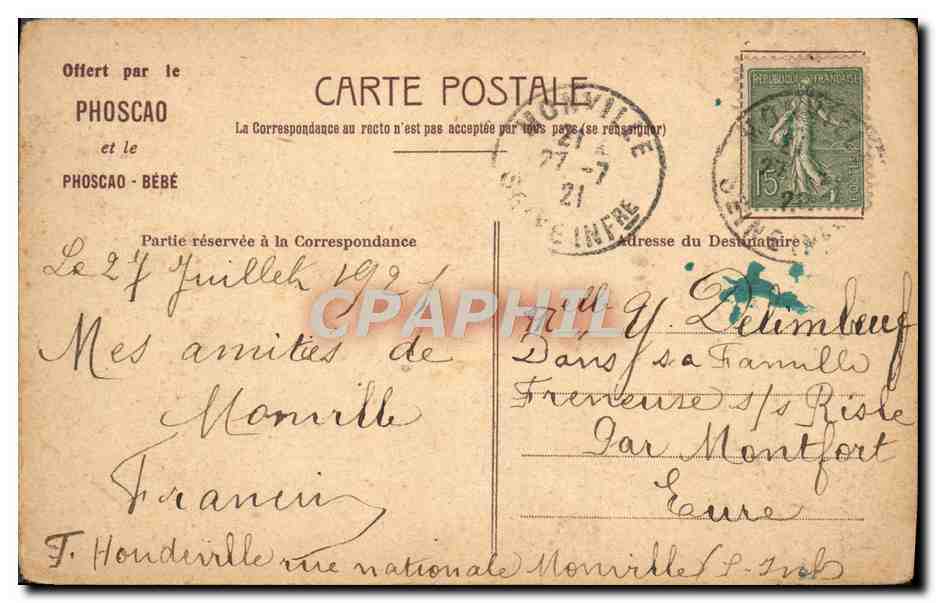 Offert par le
PHOSCAO
et le
PHOSCAO - BÉBÉ
CARTE POSTALE
La Correspondance au recto n'est pas acceptée par tous pays (se renseigner)
MONVILLE
21
27 -7
21
SEINE INFRE
REPUBLIQUE FRANÇAISE
15
Partie réservée à la Correspondance
Adresse du Destinataire
Le 27 Juillet 1921
Mes amitiés de
Monville
Francin
F. Houdeville rue nationale Monville (S-Inf
Mlle Y. Delimbeuf
Dans sa Famille
Freneuse s/s Risle
Par Montfort
Eure
CPAPHIL